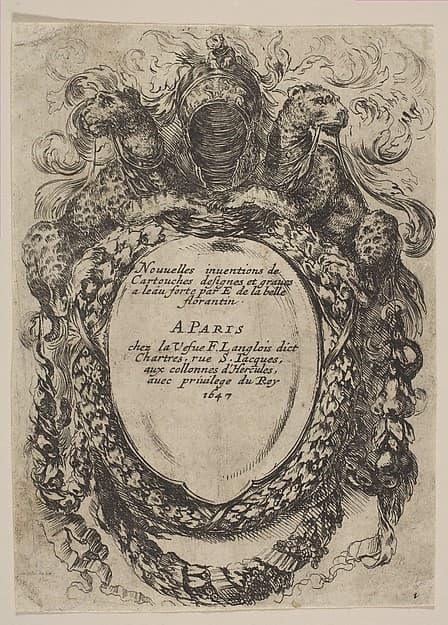 Nouvelles inventions de
Cartouches designes et graues
a leau forte par E de la belle
florantin
A PARIS
chez la Vefue F. Langlois dict
Chartres, rue S. Iacques,
aux collonnes d'Hercules,
auec priuilege du Roy
1647
1